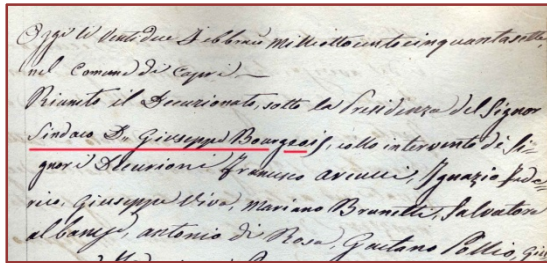 Oggi li venti due Febbraio Milleottocentocinquantasette,
nel Comune di Capri —
Riunito il Decurionato, sotto la Presidenza del Signor
Sindaco Dn Giuseppe Bourgeois, collo intervento de' Si-
gnori Decurioni Francesco Arcucci, Ignazio Fede-
rico, Giuseppe Viva, Mariano Brunetti, Salvatore
Albanese, Antonio di Rosa, Gaetano Pollio, Giu